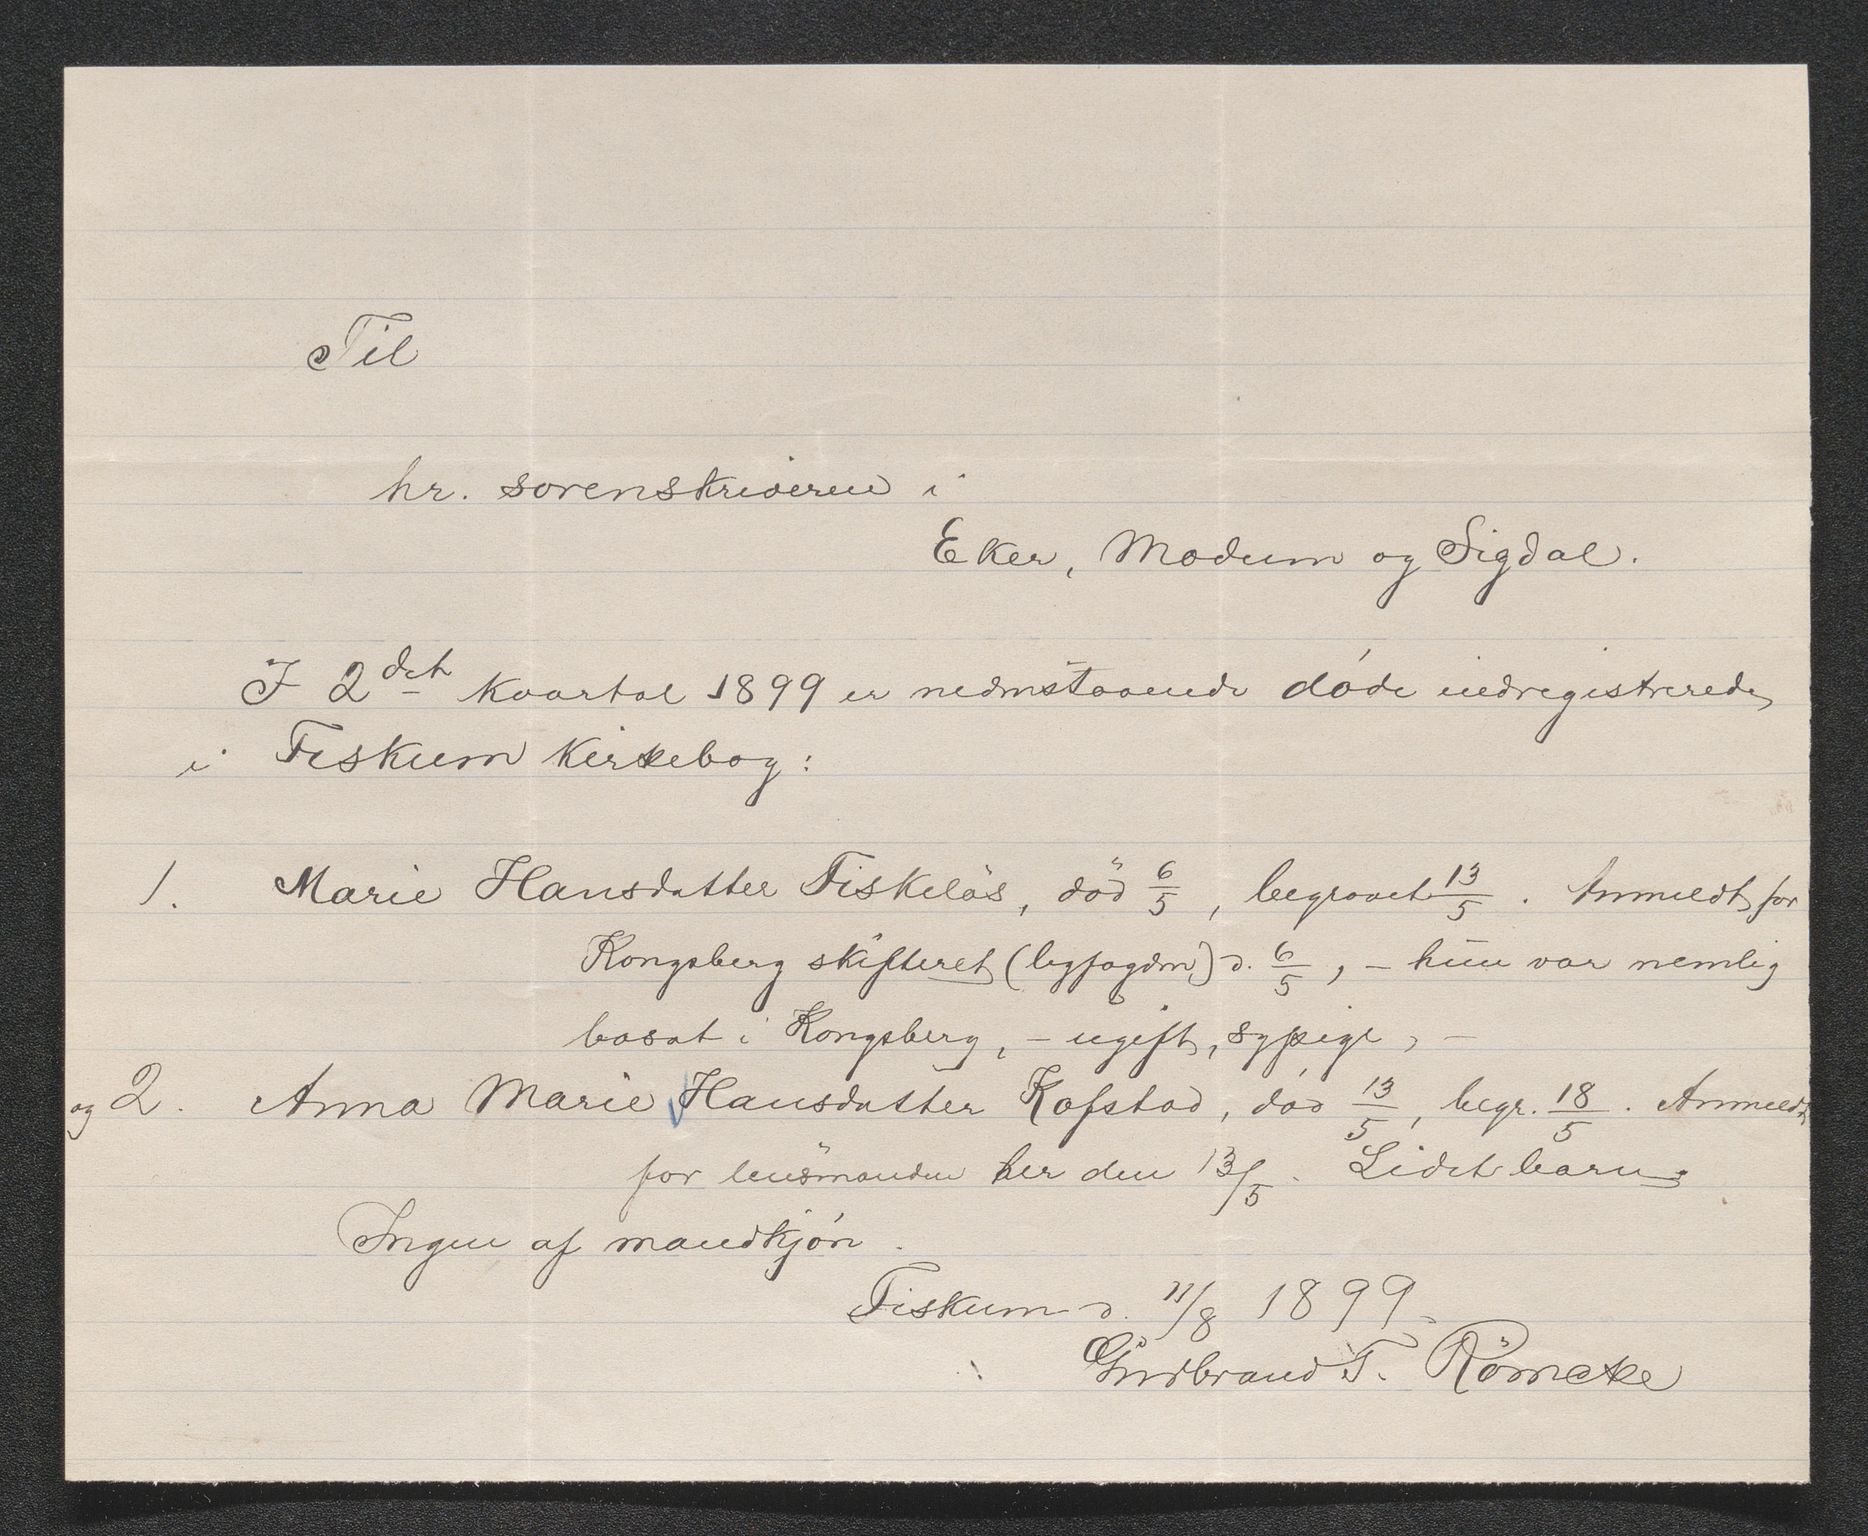 Til
hr. sorenskriveren i
Eker, Modum og Sigdal.
I 2det kvartal 1899 er nedenstaaende døde indregistrerede
i Fiskum kirkebog:
1. Marie Hansdatter Fiskelös, död 6/5, begravet 13/5. Anmeldt for
Kongsberg skifteret (byfogdm) d. 6/5, – hun var nemlig
bosat i Kongsberg, – ugift, sypige, –
og 2. Anna Marie Hansdatter Kofstad, død 13/5, begr. 18/5. Anmeldt
for lensmanden her den 13/5. Lidet barn.
Ingen af mandkjøn.
Fiskum d. 11/8 1899.
Gudbrand T. Römcke